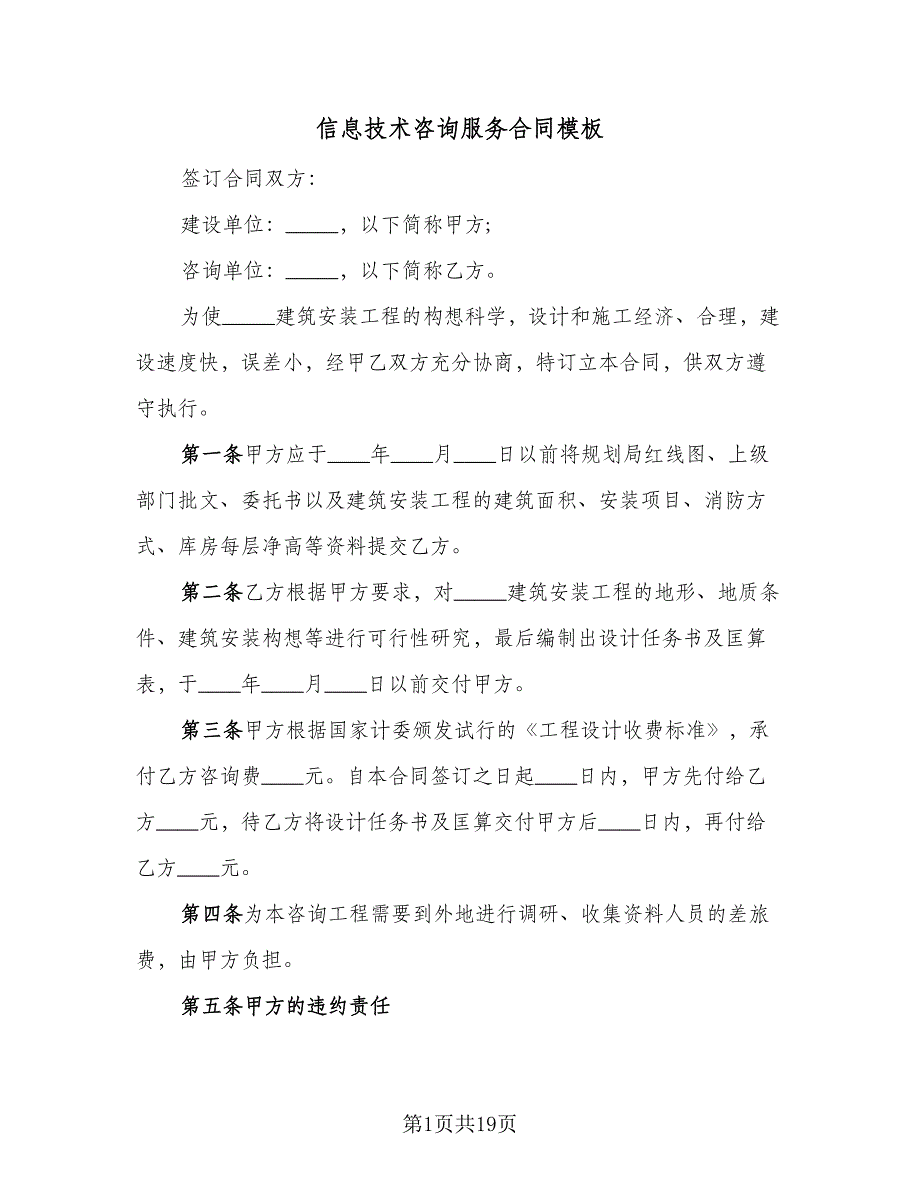 信息技术咨询服务合同模板
签订合同双方：
建设单位：_____，以下简称甲方;
咨询单位：_____，以下简称乙方。
为使_____建筑安装工程的构想科学，设计和施工经济、合理，建
设速度快，误差小，经甲乙双方充分协商，特订立本合同，供双方遵
守执行。
第一条甲方应于____年____月____日以前将规划局红线图、上级
部门批文、委托书以及建筑安装工程的建筑面积、安装项目、消防方
式、库房每层净高等资料提交乙方。
第二条乙方根据甲方要求，对_____建筑安装工程的地形、地质条
件、建筑安装构想等进行可行性研究，最后编制出设计任务书及匡算
表，于____年____月____日以前交付甲方。
第三条甲方根据国家计委颁发试行的《工程设计收费标准》，承
付乙方咨询费____元。自本合同签订之日起____日内，甲方先付给乙
方____元，待乙方将设计任务书及匡算交付甲方后____日内，再付给
乙方____元。
第四条为本咨询工程需要到外地进行调研、收集资料人员的差旅
费，由甲方负担。
第五条甲方的违约责任
第1页共19页